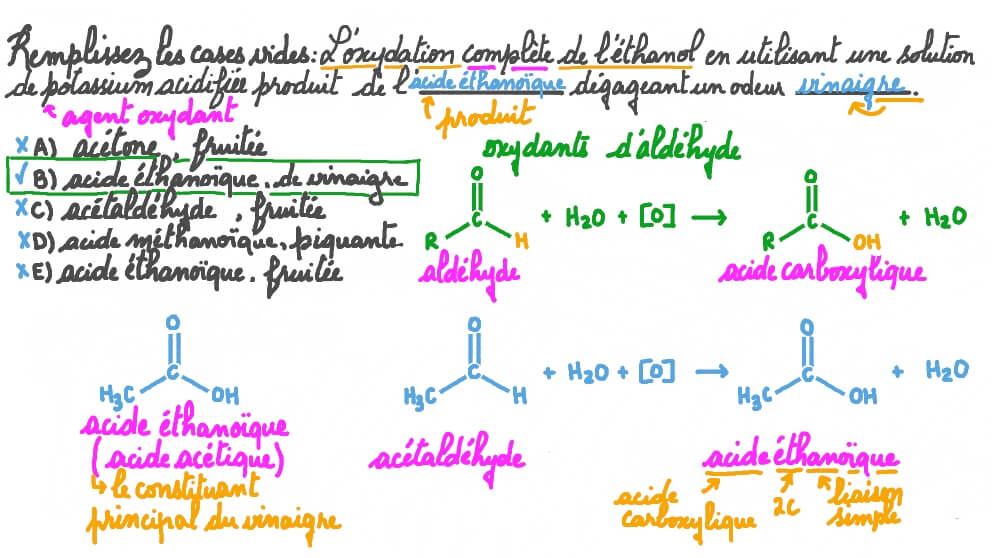 Remplissez les cases vides: L'oxydation complète de l'éthanol en utilisant une solution
de potassium acidifiée produit de l'acide éthanoïque dégageant un odeur vinaigre.
agent oxydant
produit
x A) acétone, fruitée
✓ B) acide éthanoïque. de vinaigre
x C) acétaldéhyde, fruitée
x D) acide méthanoïque, piquante
x E) acide éthanoïque. fruitée
oxydants d'aldéhyde
O
C
R H
+ H2O + [O] →
O
C
R OH
+ H2O
aldéhyde
acide carboxylique
O
C
H3C OH
O
C
H3C H
+ H2O + [O] →
O
C
H3C OH
+ H2O
acide éthanoïque
(acide acétique)
↳ le constituant
principal du vinaigre
acétaldéhyde
acide éthanoïque
acide
carboxylique
2C
liaison
simple